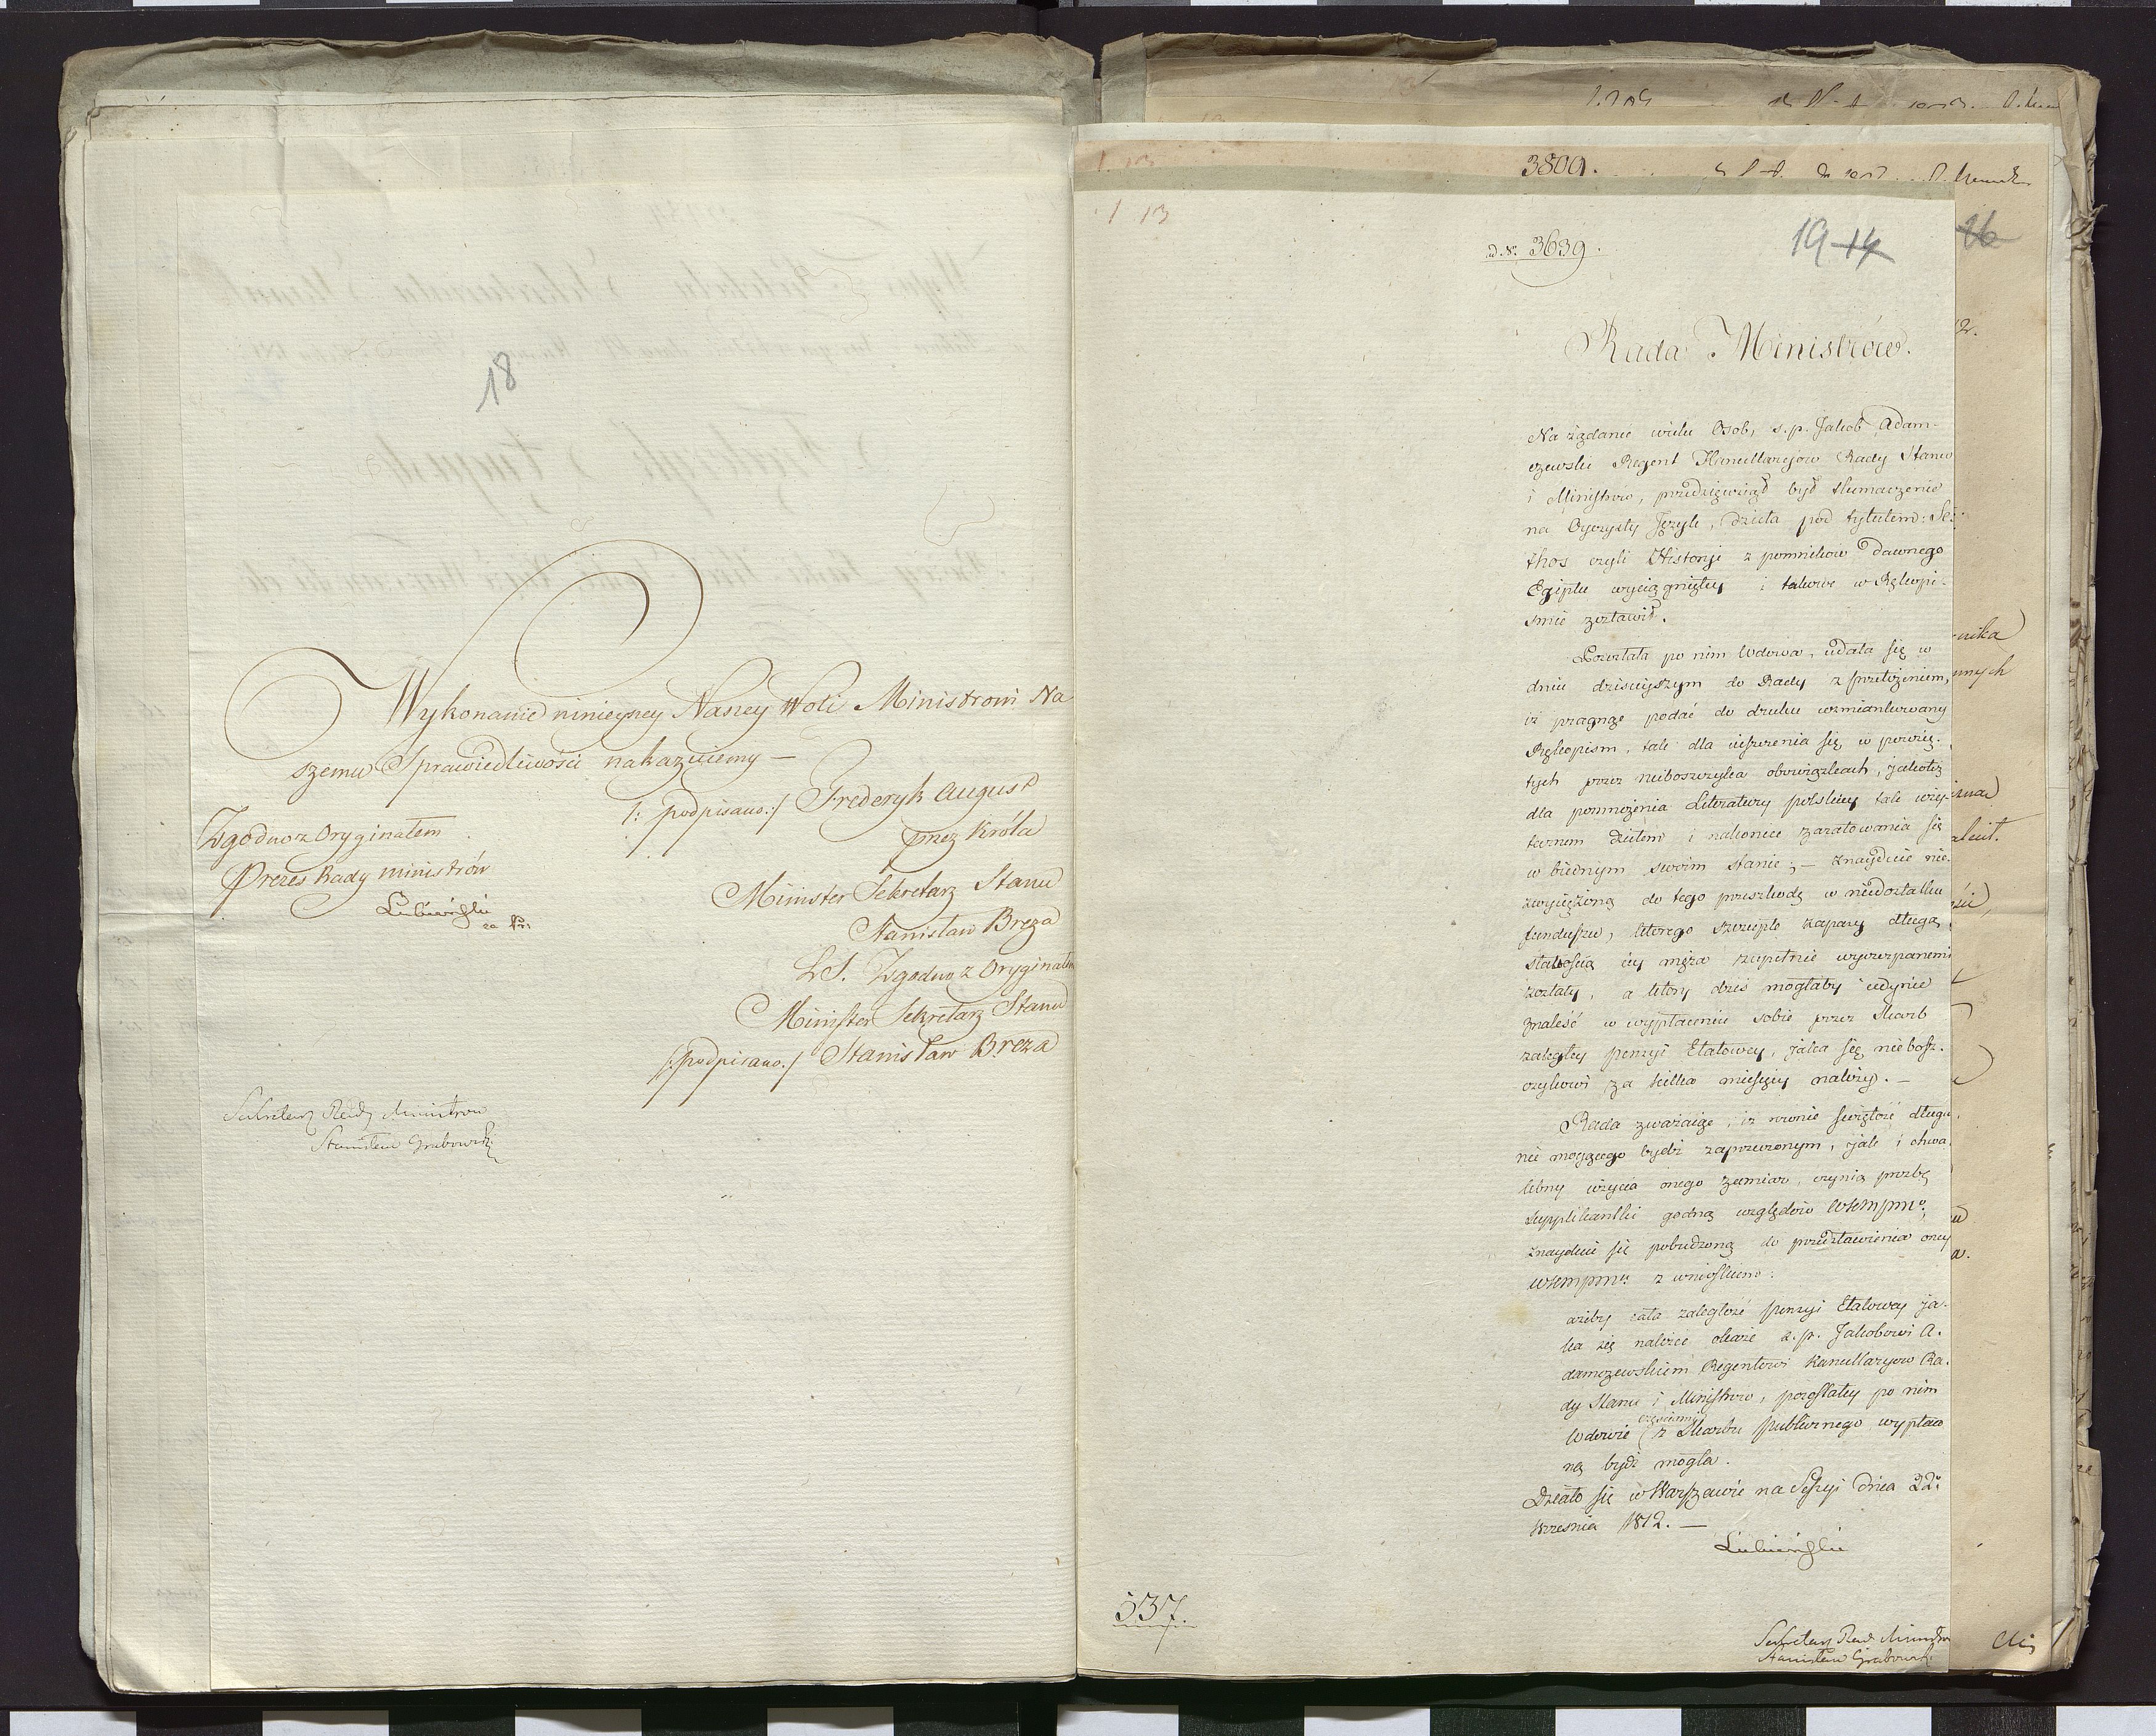 18
Wykonanie ninieyszey Naszey Woli Ministrowi Na
szemu Sprawiedliwości nakazuiemy —
/: podpisano :/ Frederyk August
przez Króla
Minister Sekretarz Stanu
Stanisław Breza
L.S. Zgodno z Oryginałem
Minister Sekretarz Stanu
/: podpisano :/ Stanisław Breza
Zgodno z Oryginałem
Prezes Rady Ministrów
Lubieński
za Pr:
Sekretarz Rady Ministrow
Stanisław Grabowski
1 13
3801.
1 13
ad Nr 3639.
19 14
16
Rada Ministrów.
Na żądanie wielu Osob, s. p. Jakob Adam-
czewski Regent Kancellaryiow Rady Stanu
i Ministrow, przedsięwziął był tłumaczenie
na Oyczysty Język, dzieła pod tytułem: Se-
thos czyli Historyi z pomnikow dawnego
Egiptu wyciągnięty i takowe w Rękopi-
smie zostawił.
Pozostała po nim Wdowa, udała się w
dniu dzisieyszym do Rady z przełożeniem,
iż pragnąc podać do druku wzmiankowany
Rękopism, tak dla uiszczenia się w powzię-
tych przez nieboszczyka obowiązkach, jakotéż
dla pomnożenia Literatury polskiey tak uży-
tecznem dziełem i nakoniec zaratowania się
w biednym swoim stanie; — znayduie nie-
zwyciężoną do tego przeszkodę w niedostatku
funduszu, którego szczupłe zapasy długą
słabością iey męża zupełnie wyczerpanemi
zostały, a który dziś mogłaby iedynie
znaleść w wypłaceniu sobie przez Skarb
zaległey pensyi Etatowey, jaka się niebosz-
czykowi za kilka miesięcy należy. —
Rada zważaiąc, iż rownie świętość długu,
nie mogącego bydź zaprzeczonym, jak i chwa-
lebny użycia onego zamiar, czynią prozbę
supplikantki godną względów WKMPMo,
znayduie się pobudzoną do przedstawienia oney
WKMPMu z wnioskiem:
ażeby cała zaległość pensyi Etatowey ja-
ka się należeć okaże s. p. Jakobowi A-
damczewskiemu Regentowi Kancellaryow Ra-
dy Stanu i Ministrow, pozostałey po nim
częściami
Wdowie z Skarbu publicznego wypłaco
ną bydź mogła.
Działo się w Warszawie na Sessyi dnia 22o
Września 1812. —
Lubieński
537.
Sekretarz Rady Ministrow
Stanisław Grabowski